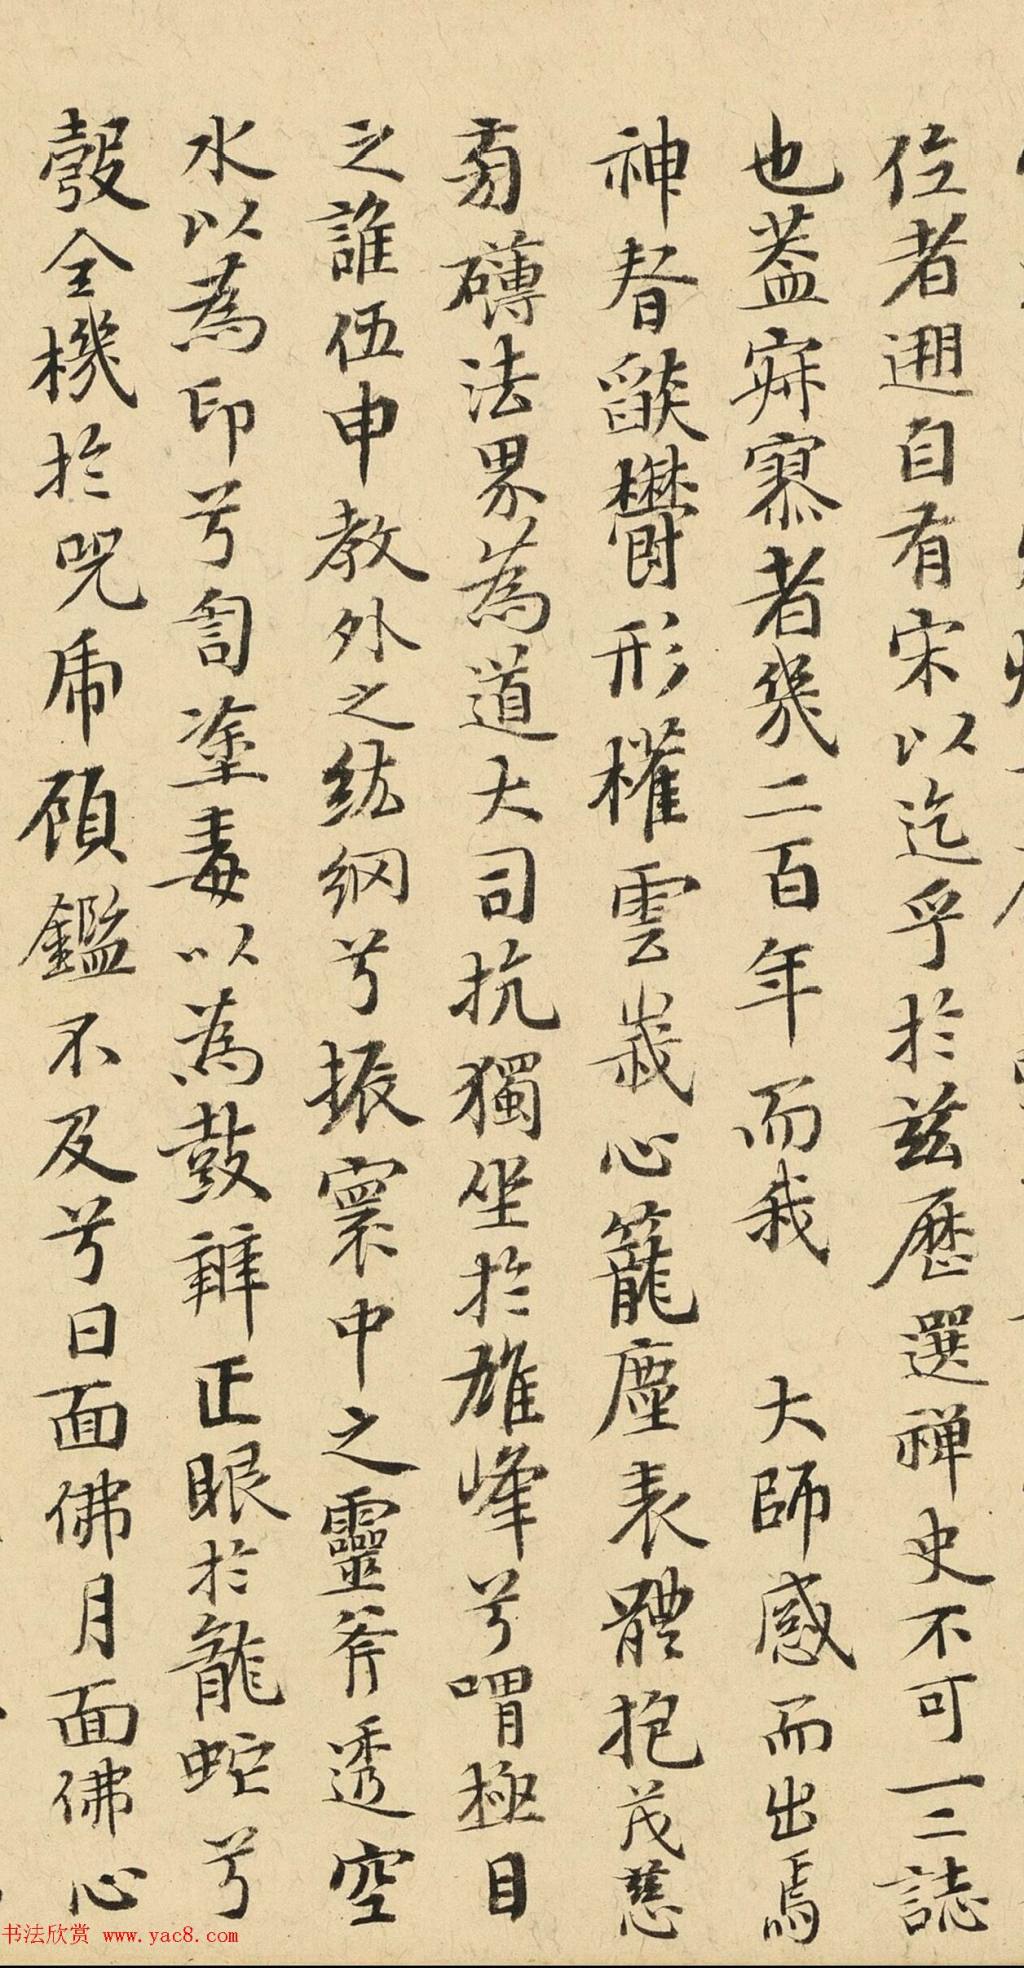 位者迥自有宋以迄乎於茲歷選禪史不可一二誌
也蓋寐寥者幾二百年而我 大師感而出焉
神眘欿欝形權雲峩心籠塵表體抱茂慈
旁礴法界為道大司抗獨坐於雄峰兮喟極目
之誰伍申教外之紘綱兮振寰中之靈斧透空
水以為印兮匋塗毒以為鼓辨正眼於龍蛇兮
彀全機於咒虎顧鑑不及兮日面佛月面佛心
书法欣赏 www.yac8.com